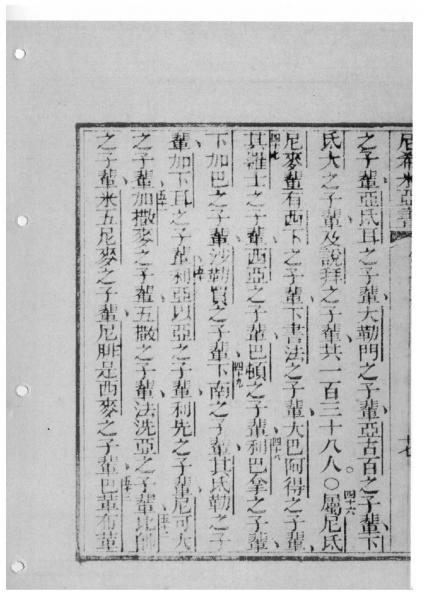 尼希米亞書 十七
之子輩亞氐耳之子輩大勒門之子輩亞古百之子輩下
氐大之子輩及說拜之子輩共一百三十八人○四十六屬尼氐
尼麥輩有西下之子輩下書法之子輩大巴阿得之子輩
四十七其羅士之子輩西亞之子輩巴頓之子輩四十八利巴拿之子輩
下加巴之子輩沙勒買之子輩四十九下南之子輩其氐勒之子
輩加下耳之子輩五十利亞以亞之子輩利先之子輩尼可大
之子輩五十一加撒麥之子輩五撒之子輩法洗亞之子輩五十二比師
之子輩米五尼麥之子輩尼腓是西麥之子輩五十三巴革布輩